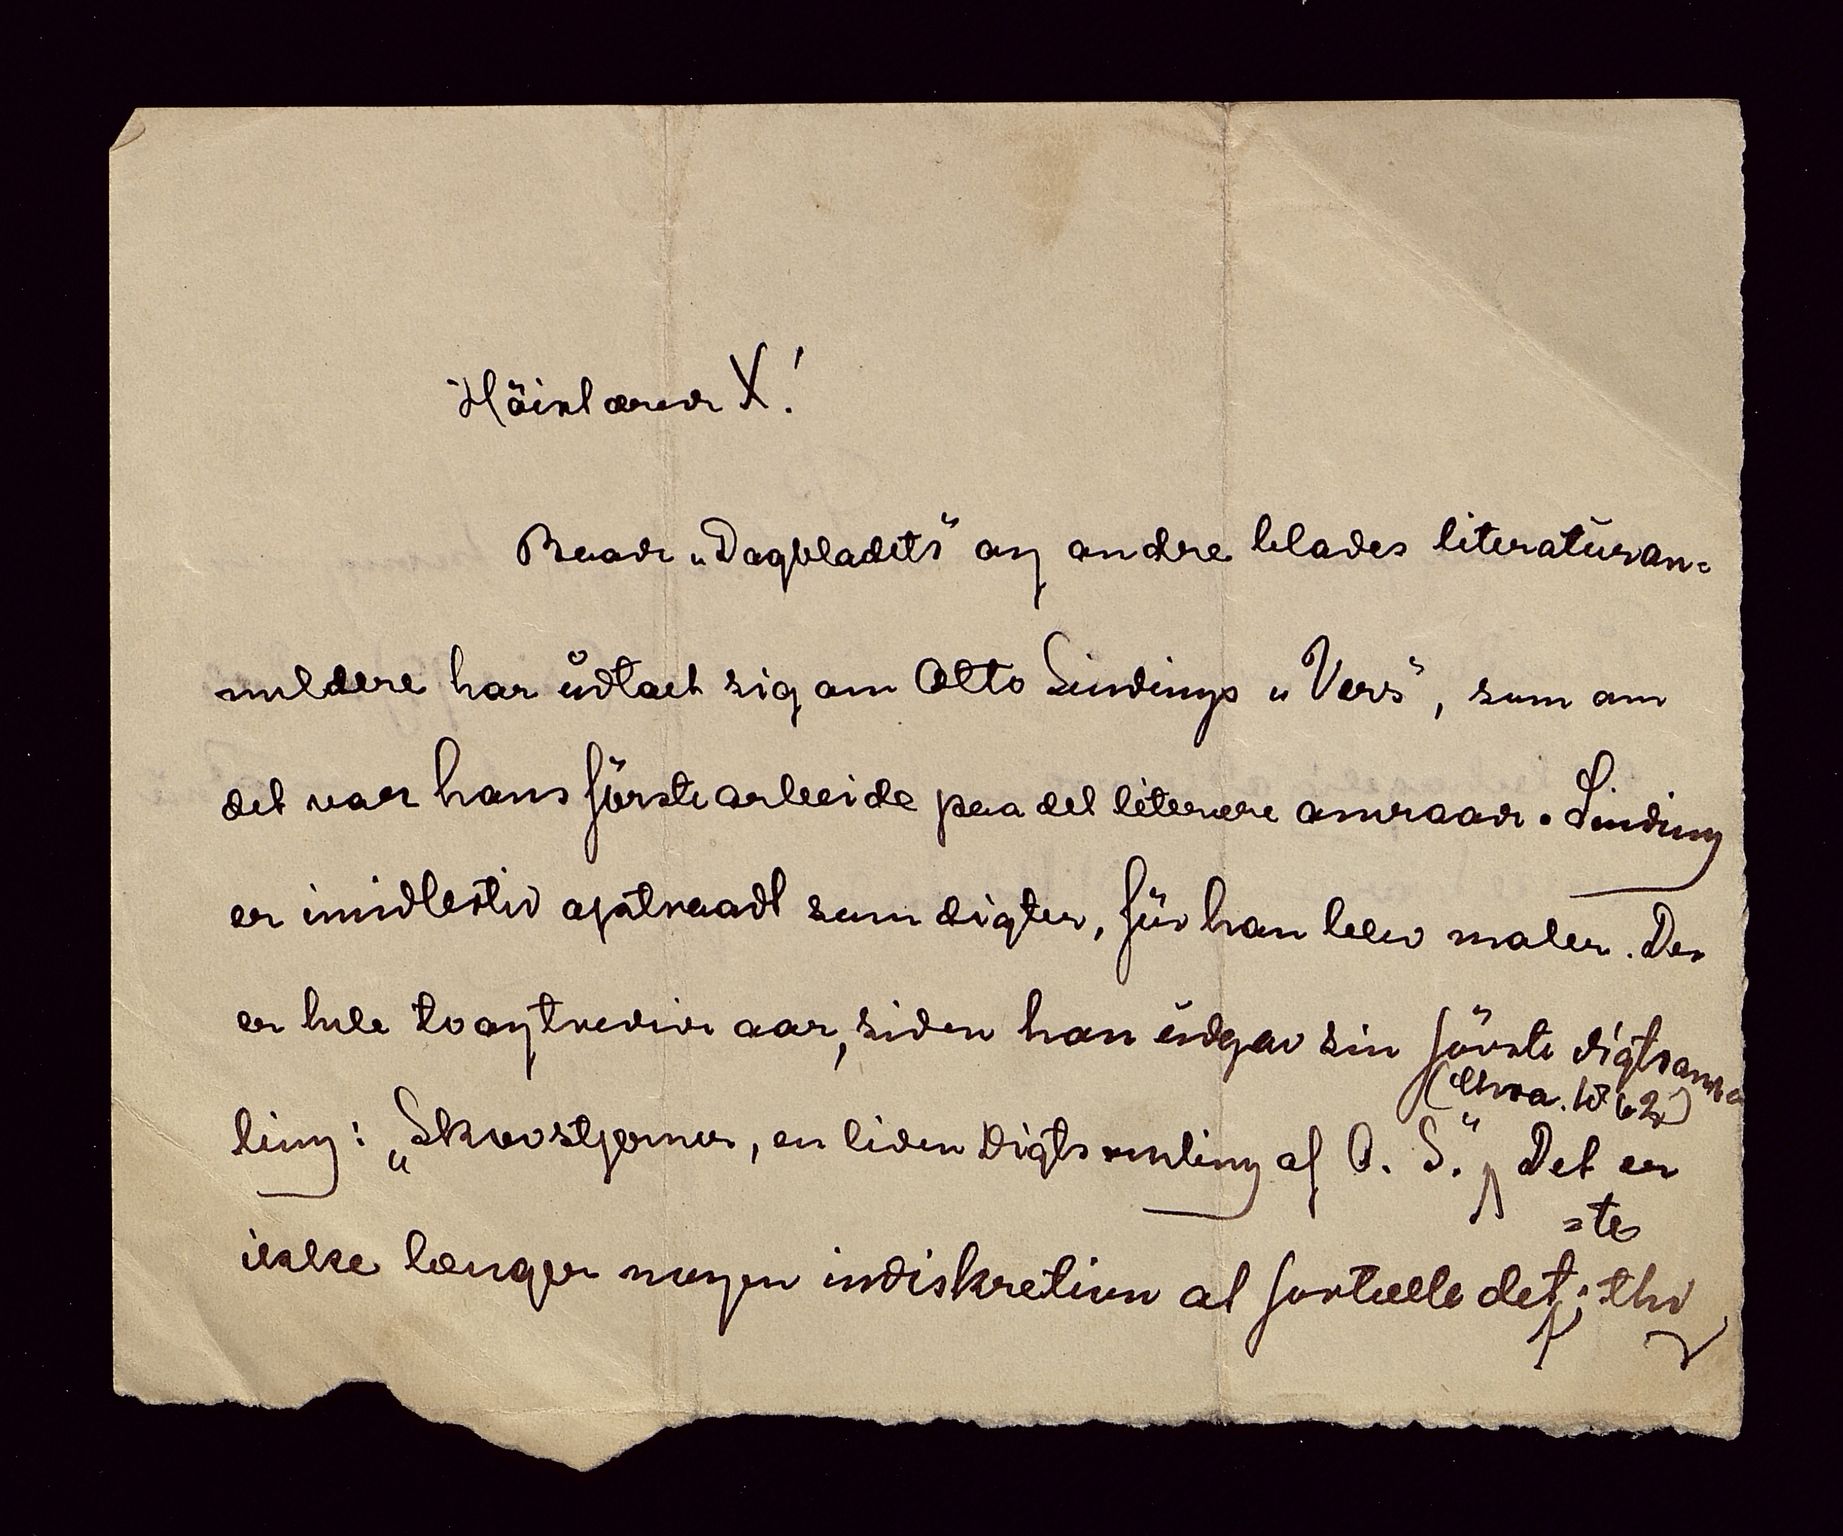 Höistærede X!
Baade „Dagbladets“ og andre blades literaturan=
meldere har udtalt sig om Otto Sindings „Vers“, som om
det var hans förstearbeide paa det literære omraade. Sinding
er imidlertid optraadt som digter, för han blev maler. Der
er hele toogtredive aar, siden han udgav sin förste digtsam=
(Chra. 1862)
ling: „Skovstjerner, en liden Digtsamling af O. S.“ Det er
=te
ikke længer nogen indiskretion at fortælle det; thi